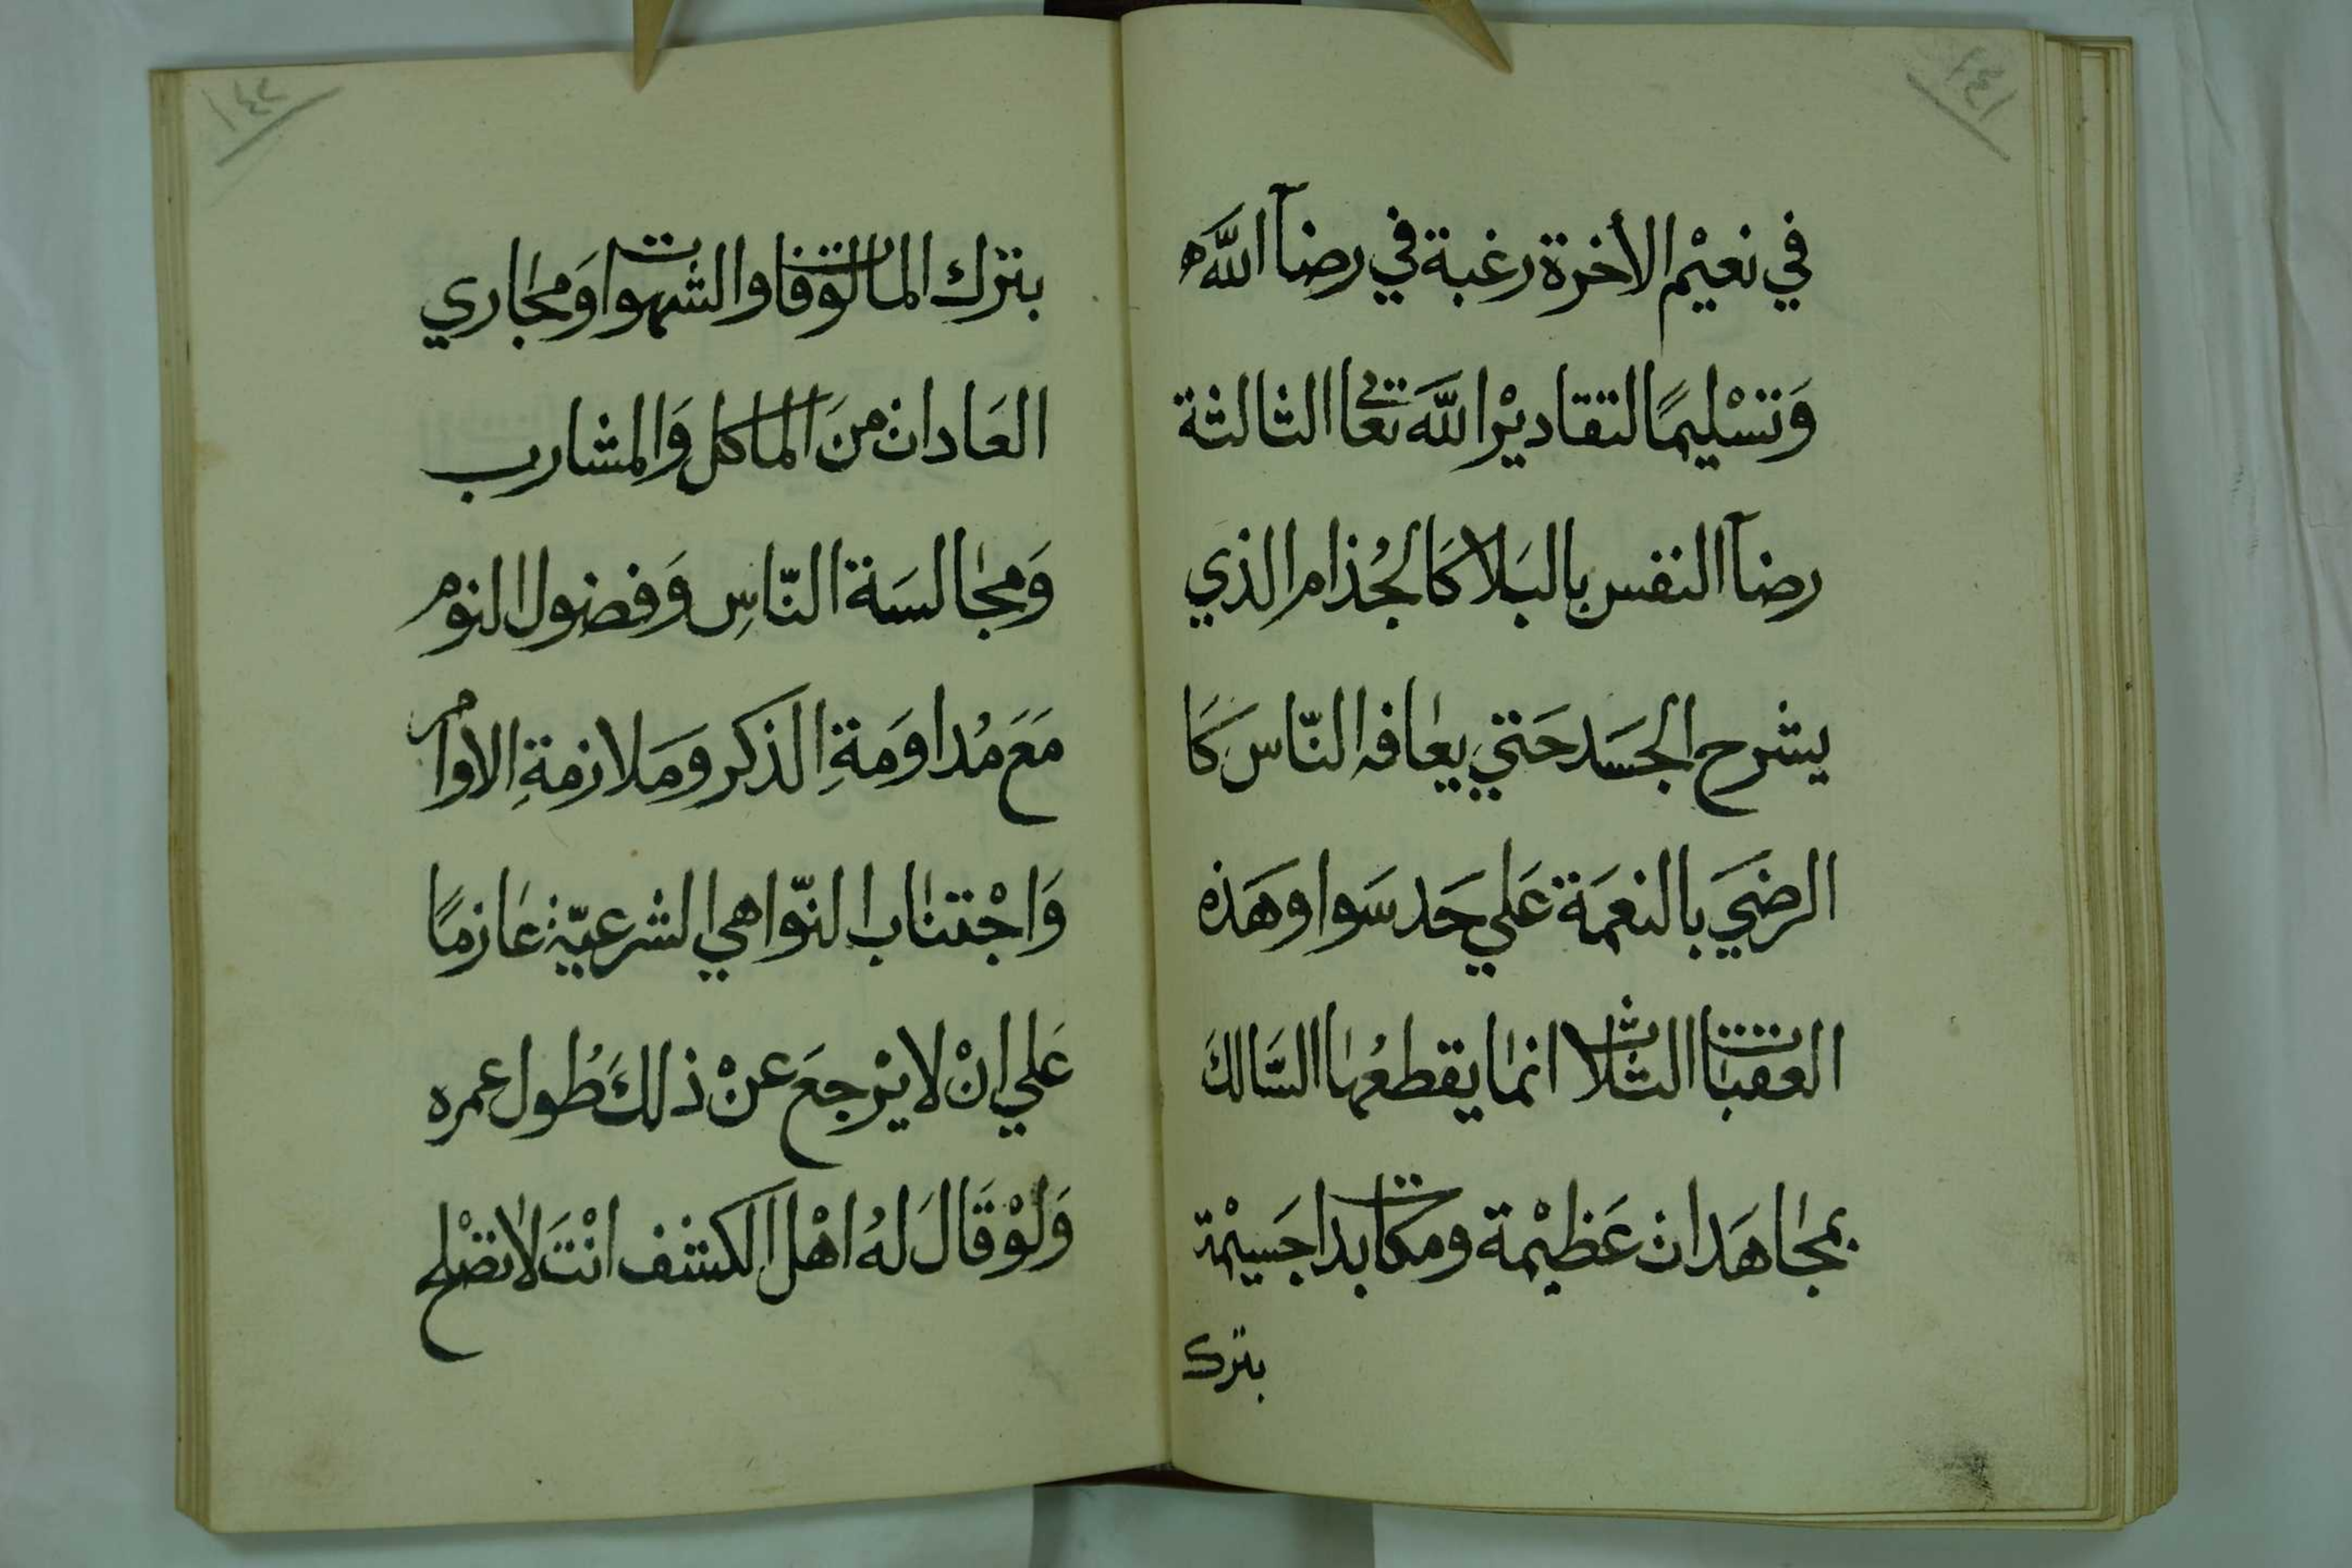 ١٤١
في نعيْم الأخرة رغبة في رضآ اللَّه
وَتسْليمًا لتقاديْر اللَّه تعالى الثالثة
رضآ النفس بالبَلا كَالجُذام الذي
يشرح الجسَد حَتي يعافه النّاس كَا
الرضيَ بالنعمَة عَلي حَد سَوا وهَذه
العقبات الثلاث انما يقطعُها السَّالكَ
بمجاهَدات عَظيْمة ومكابدات جَسيْمة
بترك
١٤٢
بترك المالوفات والشهوات وَمجاري
العَادات منَ الماكل وَالمشارب
وَمجالسَة النّاسِ وَفضول النوم
مَعَ مُداوَمَةِ الذكر وَمَلازمةِ الاوامر
وَاجْتناب النّواهي الشرعيّة عَازمًا
عَلي انْ لا يرْجعَ عنْ ذلكَ طُول عمره
وَلوْ قَالَ لهُ اهْل الكشف انْتَ لا تصْلح